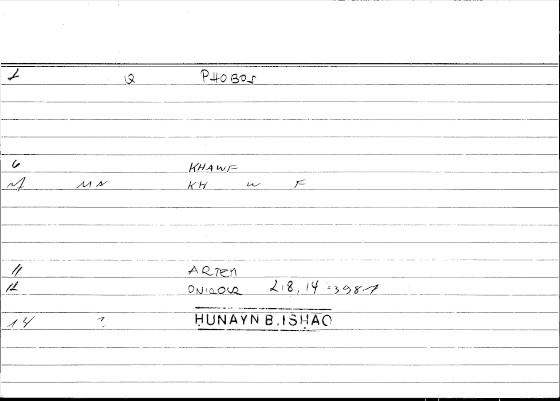 1 Q PHOBOS
6 KHAWF
M MA KH W F
11 ARTEM
12 ONIROCR 2.8, 14 =398
14 ? HUNAYN B. ISHAQ